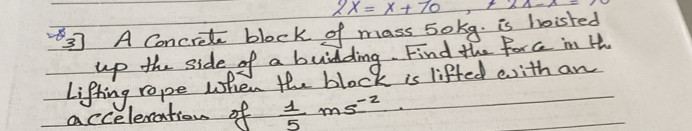 2x = x + 70
3] A Concrete block of mass 50kg. is hoisted
up the side of a buidding. Find the force in the
Lifting rope when the block is lifted with an
acceleration of 1/5 ms⁻²